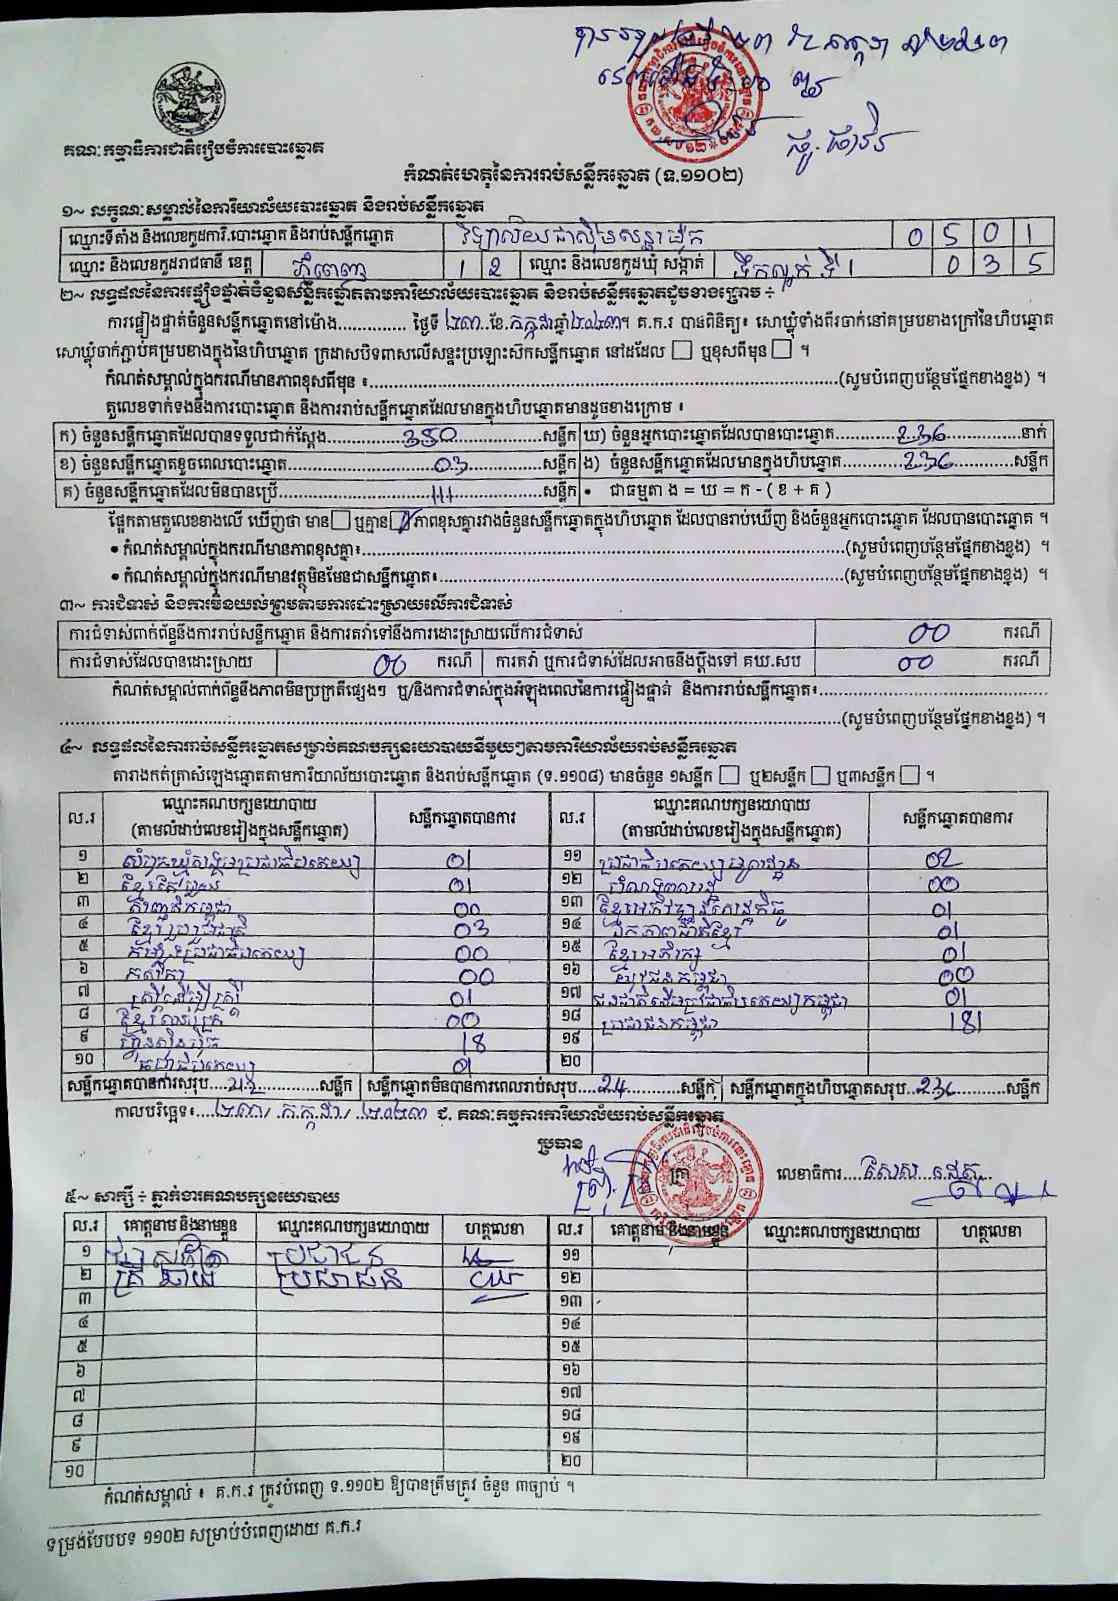 គណៈកម្មាធិការជាតិរៀបចំការបោះឆ្នោត
កំណត់ហេតុនៃការរាប់សន្លឹកឆ្នោត (ទ.១១០២)
១~ លក្ខណៈសម្គាល់នៃការិយាល័យបោះឆ្នោត និងរាប់សន្លឹកឆ្នោត
ឈ្មោះទីតាំង និងលេខកូដការិ.បោះឆ្នោត និងរាប់សន្លឹកឆ្នោត វិទ្យាល័យជាស៊ីមសន្ធរម៉ុក 0 5 0 1
ឈ្មោះ និងលេខកូដរាជធានី ខេត្ត ភ្នំពេញ 1 2 ឈ្មោះ និងលេខកូដឃុំ សង្កាត់ ទឹកល្អក់ ទី 1 0 3 5
២~ លទ្ធផលនៃការផ្ទៀងផ្ទាត់ចំនួនសន្លឹកឆ្នោតតាមការិយាល័យបោះឆ្នោត និងរាប់សន្លឹកឆ្នោតដូចខាងក្រោម ÷
ការផ្ទៀងផ្ទាត់ចំនួនសន្លឹកឆ្នោតនៅម៉ោង.............. ថ្ងៃទី ២៣ ខែ កក្កដា ឆ្នាំ ២០២៣។ គ.ក.រ បានពិនិត្យ៖ សោឃ្លុំទាំងពីរចាក់នៅគម្របខាងក្រៅនៃហិបឆ្នោត
សោឃ្លុំចាក់ភ្ជាប់គម្របខាងក្នុងនៃហិបឆ្នោត ក្រដាសបិទពាសលើសន្ទះប្រឡោះស៊កសន្លឹកឆ្នោត នៅដដែល ☐ ឬខុសពីមុន ☐ ។
កំណត់សម្គាល់ក្នុងករណីមានភាពខុសពីមុន ៖.............(សូមបំពេញបន្ថែមផ្នែកខាងខ្នង) ។
តួលេខទាក់ទងនឹងការបោះឆ្នោត និងការរាប់សន្លឹកឆ្នោតដែលមានក្នុងហិបឆ្នោតមានដូចខាងក្រោម ៖
ក) ចំនួនសន្លឹកឆ្នោតដែលបានទទួលជាក់ស្តែង 350 សន្លឹក ឃ) ចំនួនអ្នកបោះឆ្នោតដែលបានបោះឆ្នោត 236 នាក់
ខ) ចំនួនសន្លឹកឆ្នោតខូចពេលបោះឆ្នោត 03 សន្លឹក ង) ចំនួនសន្លឹកឆ្នោតដែលមានក្នុងហិបឆ្នោត 236 សន្លឹក
គ) ចំនួនសន្លឹកឆ្នោតដែលមិនបានប្រើ 111 សន្លឹក • ជាធម្មតា ង = ឃ = ក - ( ខ + គ )
ផ្អែកតាមតួលេខខាងលើ ឃើញថា មាន ☐ ឬគ្មាន ☑ ភាពខុសគ្នារវាងចំនួនសន្លឹកឆ្នោតក្នុងហិបឆ្នោត ដែលបានរាប់ឃើញ និងចំនួនអ្នកបោះឆ្នោត ដែលបានបោះឆ្នោត ។
• កំណត់សម្គាល់ក្នុងករណីមានភាពខុសគ្នា៖.............(សូមបំពេញបន្ថែមផ្នែកខាងខ្នង) ។
• កំណត់សម្គាល់ក្នុងករណីមានវត្ថុមិនមែនជាសន្លឹកឆ្នោត៖.............(សូមបំពេញបន្ថែមផ្នែកខាងខ្នង) ។
៣~ ការជំទាស់ និងការមិនយល់ព្រមតាមការដោះស្រាយលើការជំទាស់
ការជំទាស់ពាក់ព័ន្ធនឹងការរាប់សន្លឹកឆ្នោត និងការតវ៉ាទៅនឹងការដោះស្រាយលើការជំទាស់ 00 ករណី
ការជំទាស់ដែលបានដោះស្រាយ 00 ករណី ការតវ៉ា ឬការជំទាស់ដែលអាចនឹងប្តឹងទៅ គឃ.សប 00 ករណី
កំណត់សម្គាល់ពាក់ព័ន្ធនឹងភាពមិនប្រក្រតីផ្សេងៗ ឬ/និងការជំទាស់ក្នុងអំឡុងពេលនៃការផ្ទៀងផ្ទាត់ និងការរាប់សន្លឹកឆ្នោត៖.............
.............(សូមបំពេញបន្ថែមផ្នែកខាងខ្នង) ។
៤~ លទ្ធផលនៃការរាប់សន្លឹកឆ្នោតសម្រាប់គណបក្សនយោបាយនីមួយៗតាមការិយាល័យរាប់សន្លឹកឆ្នោត
តារាងកត់ត្រាសំឡេងឆ្នោតតាមការិយាល័យបោះឆ្នោត និងរាប់សន្លឹកឆ្នោត (ទ.១១០៨) មានចំនួន ១សន្លឹក ☐ ឬ២សន្លឹក ☐ ឬ៣សន្លឹក ☐ ។
ល.រ ឈ្មោះគណបក្សនយោបាយ (តាមលំដាប់លេខរៀងក្នុងសន្លឹកឆ្នោត) សន្លឹកឆ្នោតបានការ ល.រ ឈ្មោះគណបក្សនយោបាយ (តាមលំដាប់លេខរៀងក្នុងសន្លឹកឆ្នោត) សន្លឹកឆ្នោតបានការ
១ សំបុកឃ្មុំសង្គមប្រជាធិបតេយ្យ 01 ១១ ប្រជាធិបតេយ្យមូលដ្ឋាន 02
២ ខ្មែរតែមួយ 01 ១២ 00
៣ កម្ពុជា 00 ១៣ ខ្មែរអភិវឌ្ឍន៍សេដ្ឋកិច្ច 01
៤ ខ្មែររួបរួមជាតិ 03 ១៤ ឯកភាពជាតិខ្មែរ 01
៥ កម្លាំងប្រជាធិបតេយ្យ 00 ១៥ ខ្មែរអភិរក្ស 01
៦ កសិករ 00 ១៦ យុវជនកម្ពុជា 00
៧ ស្ត្រីដើម្បីស្ត្រី 01 ១៧ ជនជាតិដើមប្រជាធិបតេយ្យកម្ពុជា 01
៨ ខ្មែរឈប់ក្រ 00 ១៨ ប្រជាជនកម្ពុជា 181
៩ ហ្វ៊ុនស៊ិនប៉ិច 18 ១៩
១០ ធម្មាធិបតេយ្យ 01 ២០
សន្លឹកឆ្នោតបានការសរុប 212 សន្លឹក សន្លឹកឆ្នោតមិនបានការពេលរាប់សរុប 24 សន្លឹក សន្លឹកឆ្នោតក្នុងហិបឆ្នោតសរុប 236 សន្លឹក
កាលបរិច្ឆេទ៖ ២៣/ កក្កដា/ ២០២៣ ជ. គណៈកម្មការការិយាល័យរាប់សន្លឹកឆ្នោត
ប្រធាន
លេខាធិការ
៥~ សាក្សី ÷ ភ្នាក់ងារគណបក្សនយោបាយ
ល.រ គោត្តនាម និងនាមខ្លួន ឈ្មោះគណបក្សនយោបាយ ហត្ថលេខា ល.រ គោត្តនាម និងនាមខ្លួន ឈ្មោះគណបក្សនយោបាយ ហត្ថលេខា
១ ប្រជាជន ១១
២ ប្រជាជន ១២
៣ ១៣
៤ ១៤
៥ ១៥
៦ ១៦
៧ ១៧
៨ ១៨
៩ ១៩
១០ ២០
កំណត់សម្គាល់ ៖ គ.ក.រ ត្រូវបំពេញ ទ.១១០២ ឱ្យបានត្រឹមត្រូវ ចំនួន ៣ច្បាប់ ។
ទម្រង់បែបបទ ១១០២ សម្រាប់បំពេញដោយ គ.ក.រ